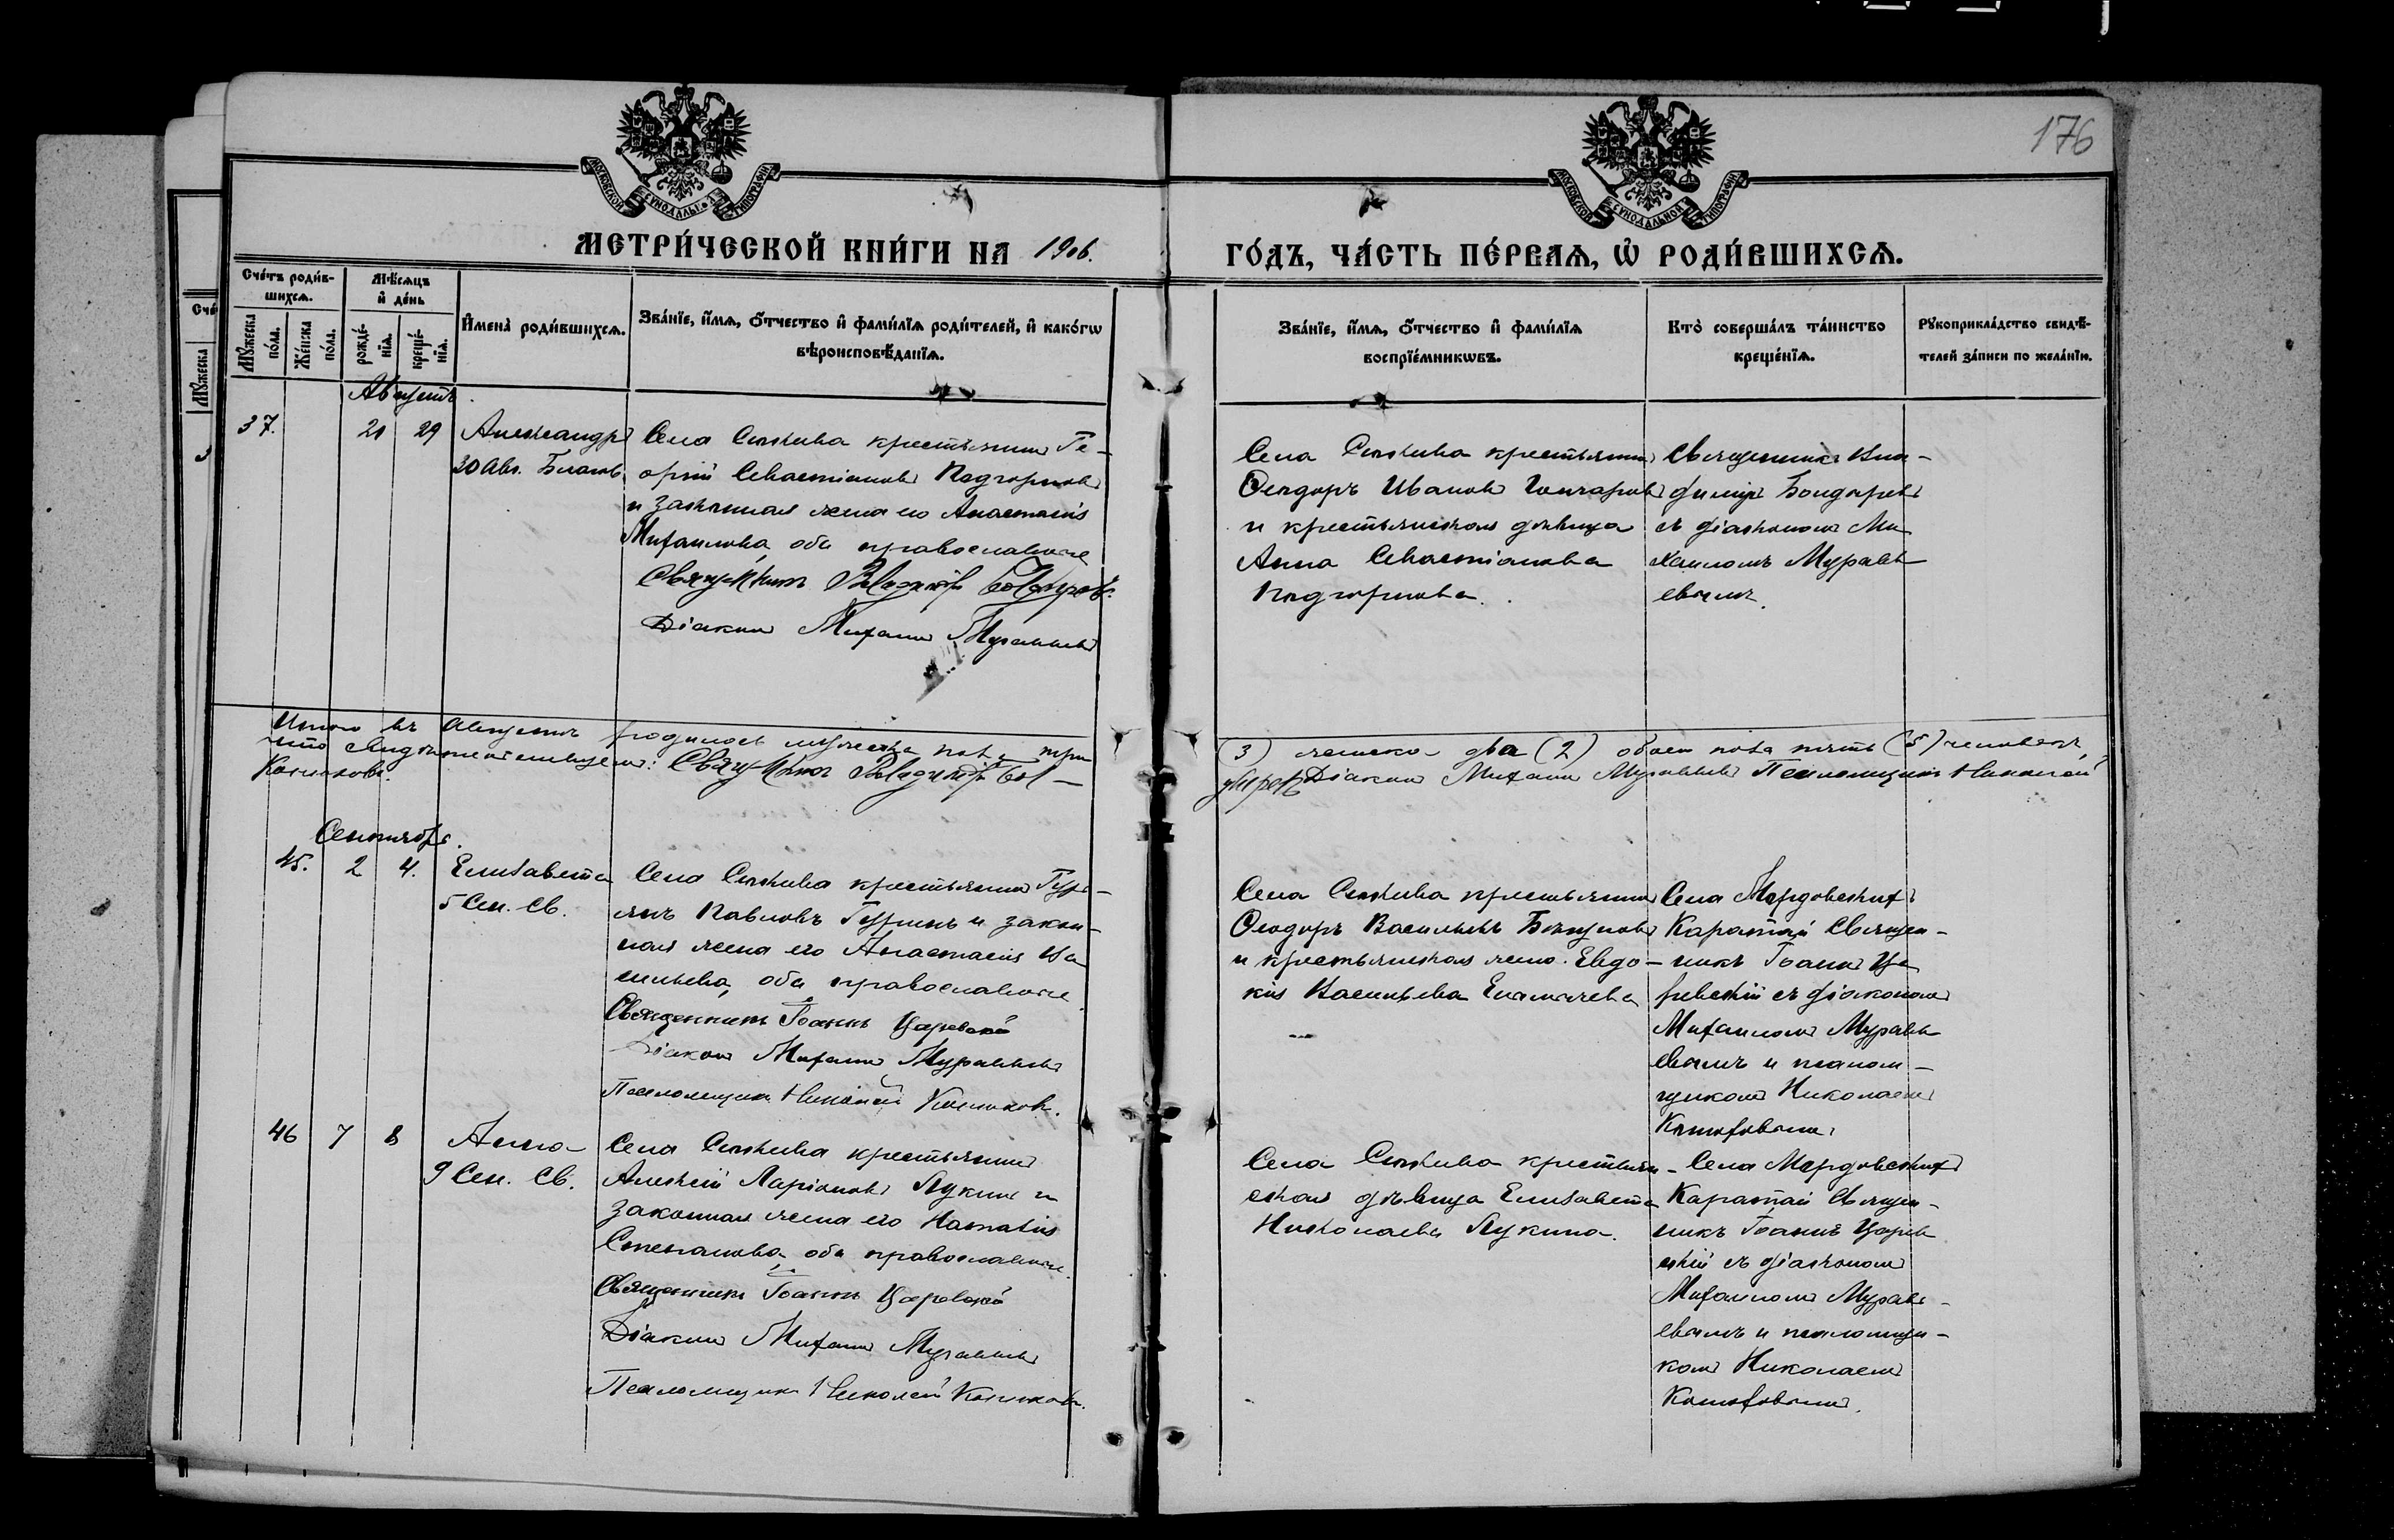 176
МОСКОВСКОЙ СѴНОДАЛЬНОЙ ТИПОГРАФІИ
МОСКОВСКОЙ СѴНОДАЛЬНОЙ ТИПОГРАФІИ
МЕТРИ́ЧЕСКОЙ КНИ́ГИ НА 1906.
ГО́ДЪ, ЧА́СТЬ ПЕ́РВАѦ, Ѽ РОДИ́ВШИХСѦ.
Сче́тъ роди́в-
шихсѧ.
Мѣ́сѧцъ
и҆ де́нь
Мꙋ́жеска
по́ла.
Же́нска
по́ла.
рожде́-
нїѧ.
креще́-
нїѧ.
И҆мена̀ роди́вшихсѧ.
Зва́нїе, и҆́мѧ, ѻ҆́тчество и҆ фами́лїѧ роди́телей, и҆ како́гѡ
вѣроисповѣ́данїѧ.
Зва́нїе, и҆́мѧ, ѻ҆́тчество и҆ фами́лїѧ
воспрїе́мникѡвъ.
Кто̀ соверша́лъ та́инство
креще́нїѧ.
Рꙋкоприкла́дство свидѣ́-
телей за́писи по жела́нїю.
Августъ.
37.
21 29
Александръ
30 Авг.
Села крестьянинъ Ге-
оргій Севастіановъ Подгорновъ
и законная жена его Анастасія
Михаилова, оба православные
Священникъ Владиміръ Бондыревъ.
Діаконъ Михаилъ Муравьевъ
Села крестьянинъ
Ѳеодоръ Ивановъ Гончаровъ
и крестьянская дѣвица
Анна Севастіанова
Подгорнова.
Священникъ Вла-
диміръ Бондыревъ
съ діакономъ Ми-
хаиломъ Муравь-
евымъ.
Итого въ Августѣ родилось мужеска пола три
(3) женска два (2) обоего пола пять (5) человекъ,
что свидѣтельствуемъ: Священникъ Владиміръ Бон-
дыревъ Діаконъ Михаилъ Муравьевъ Псаломщикъ Николай
Сентябрь.
45. 2 4.
Елизавета
5 Сен. Св.
Села крестьянинъ Гурь-
янъ Павловъ Гуринъ и закон-
ная жена его Анастасія Ва-
сильева, оба православные.
Священникъ Іоаннъ Царевскій
Діаконъ Михаилъ Муравьевъ
Псаломщикъ Николай
Села крестьянинъ
Ѳеодоръ Васильевъ
и крестьянская жена Евдо-
кія Васильева
Села Мордовскихъ
Каратай Священ-
никъ Іоаннъ Ца-
ревскій съ діакономъ
Михаиломъ Муравь-
евымъ и псалом-
щикомъ Николаемъ
46 7 8
Анна
9 Сен. Св.
Села крестьянинъ
Алексій Ларіоновъ Лукинъ и
законная жена его Наталія
Степанова, оба православные.
Священникъ Іоаннъ Царевскій
Діаконъ Михаилъ Муравьевъ
Псаломщикъ Николай
Села крестьян-
ская дѣвица Елизавета
Николаева Лукина.
Села Мордовскихъ
Каратай Священ-
никъ Іоаннъ Царев-
скій съ діакономъ
Михаиломъ Муравь-
евымъ и псаломщи-
комъ Николаемъ